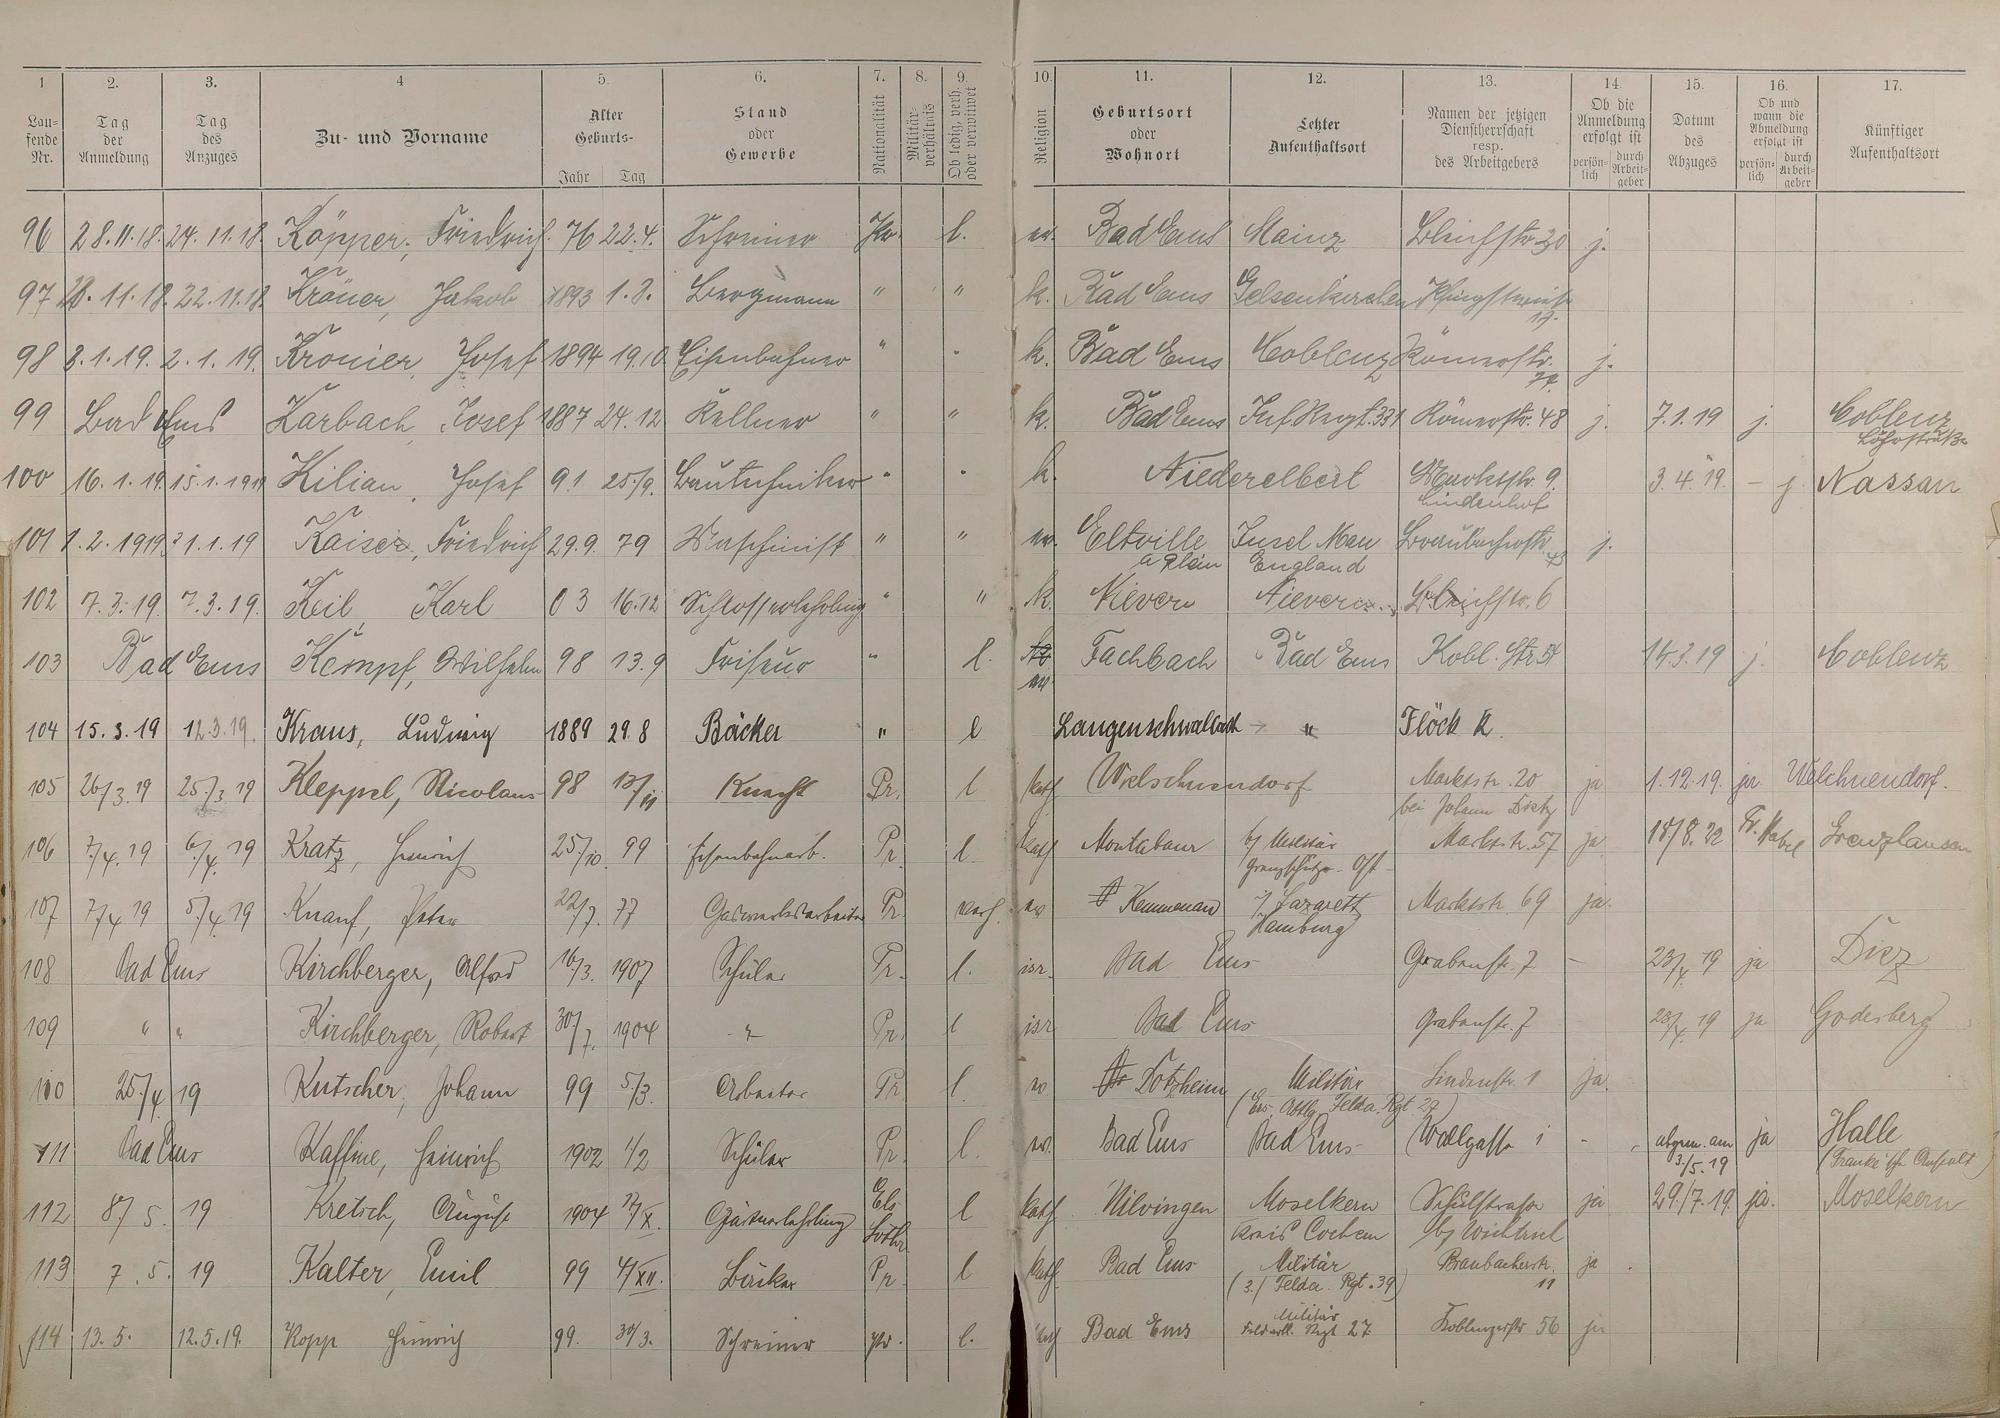 1 2. 3. 4 5. 6. 7. 8. 9. 10. 11. 12. 13. 14. 15. 16. 17.
Lau-
fende
Nr.
Tag
der
Anmeldung
Tag
des
Anzuges
Zu- und Vorname
Alter
Geburts-
Jahr Tag
Stand
oder
Gewerbe
Nationalität
Militär-
verhältnis
Ob ledig, verh.
oder verwitwet
Religion
Geburtsort
oder
Wohnort
Letzter
Aufenthaltsort
Namen der jetzigen
Dienstherrschaft
resp.
des Arbeitgebers
Ob die
Anmeldung
erfolgt ist
persön-
lich
durch
Arbeit-
geber
Datum
des
Abzuges
Ob und
wann die
Abmeldung
erfolgt ist
persön-
lich
durch
Arbeit-
geber
Künftiger
Aufenthaltsort
96 28.11.18. 24.11.18. Köpper, Friedrich 76 22.4. Schreiner Pr. l. ev. Bad Ems Mainz Bleichstr. 30 j.
97 22.11.18. Kröner, Jakob 1893 1.8. Bergmann " " k. Bad Ems Gelsenkirchen
98 3.1.19. 2.1.19. Kronier, Josef 1894 19.10. Eisenbahner " " k. Bad Ems Coblenz Römerstr. j.
99 Bad Ems Karbach, Josef 1887 24.12 Kellner " " k. Bad Ems Inf. Regt. 331 Römerstr. 48 j. 7.1.19 j. Coblenz
Löhrstraße
100 16.1.19. 15.1.1919 Kilian, Josef 91 25/9. Bautechniker " " k. Niederelbert Marktstr. 9. 3.4.19. – j. Nassau
Lindenhof
101 1.2.1919 31.1.19 Kaiser, Friedrich 29.9. 79 Maschinist " " ev. Eltville Insel Man Braubacherstr. j.
a Rhein England 43
102 7.3.19. 7.3.19. Keil, Karl 03 16.12 Schlosserlehrling " " k. Nievern Nievern Bleichstr. 6
103 Bad Ems Kempf, Wilhelm 98 13.9 Friseur " l. ev. Fachbach Bad Ems Kobl. Str. 54 14.3.19 j. Coblenz
104 15.3.19 12.3.19. Kraus, Ludwig 1889 29.8 Bäcker " l Langenschwalbach " Flöck R.
105 26/3.19 25./3.19 Kleppel, Nicolaus 98 Knecht Pr. l kath Welschneudorf Marktstr. 20 ja 1.12.19. ja Welchneudorf.
bei Johann Dietz
106 7/4.19 6/4.19 Kratz, Heinrich 25/10. 99 Eisenbahnarb. Pr. l. kath Montabaur b/ Militär Marktstr. 57 ja 18/8.22
Grenzschutz-Ost
107 7/4 19 5/4.19 Knauf, Peter 22/7. 77 Gaswerksarbeiter Pr. verh. ev Kemmenau i/ Lazarett Marktstr. 69 ja.
Hamburg
108 Bad Ems Kirchberger, Alfred 16/3. 1907 Schüler Pr. l. isr. Bad Ems Grabenstr. 7 – 23/4.19 ja Diez
109 " " Kirchberger, Robert 30/7. 1904 " Pr. l isr Bad Ems Grabenstr. 7 23/4.19 ja Godesberg
110 25/4 19 Kutscher, Johann 99 5/3. Arbeiter Pr. l. ev Dotzheim Militär Lindenstr. 1 ja
(Ers. Abtlg. Felda. Rgt. 27)
111 Bad Ems Kaffine, Heinrich 1902 1/2 Schüler Pr. l. ev. Bad Ems Bad Ems Wallgasse 1 - abgem. am ja Halle
3./5.19 (Franke'sche Anstalt)
112 8/5. 19 Kretsch, August 1904 12/X. Gärtnerlehrling Els. l kath Nilvingen Moselkern Schulstrasse ja 29./7.19. ja. Moselkern
Lothr. Kreis Cochem
113 7.5. 19 Kalter, Emil 99 4/XII. Bäcker Pr l kath. Bad Ems Militär Braubacherstr. ja
(3./ Felda. Rgt. 39) 11
114 13.5. 12.5.19. Kopp Heinrich 99. 30/3. Schreiner Pr. l. kath Bad Ems Militär Koblenzerstr 56 ja
Feldartl. Regt 27